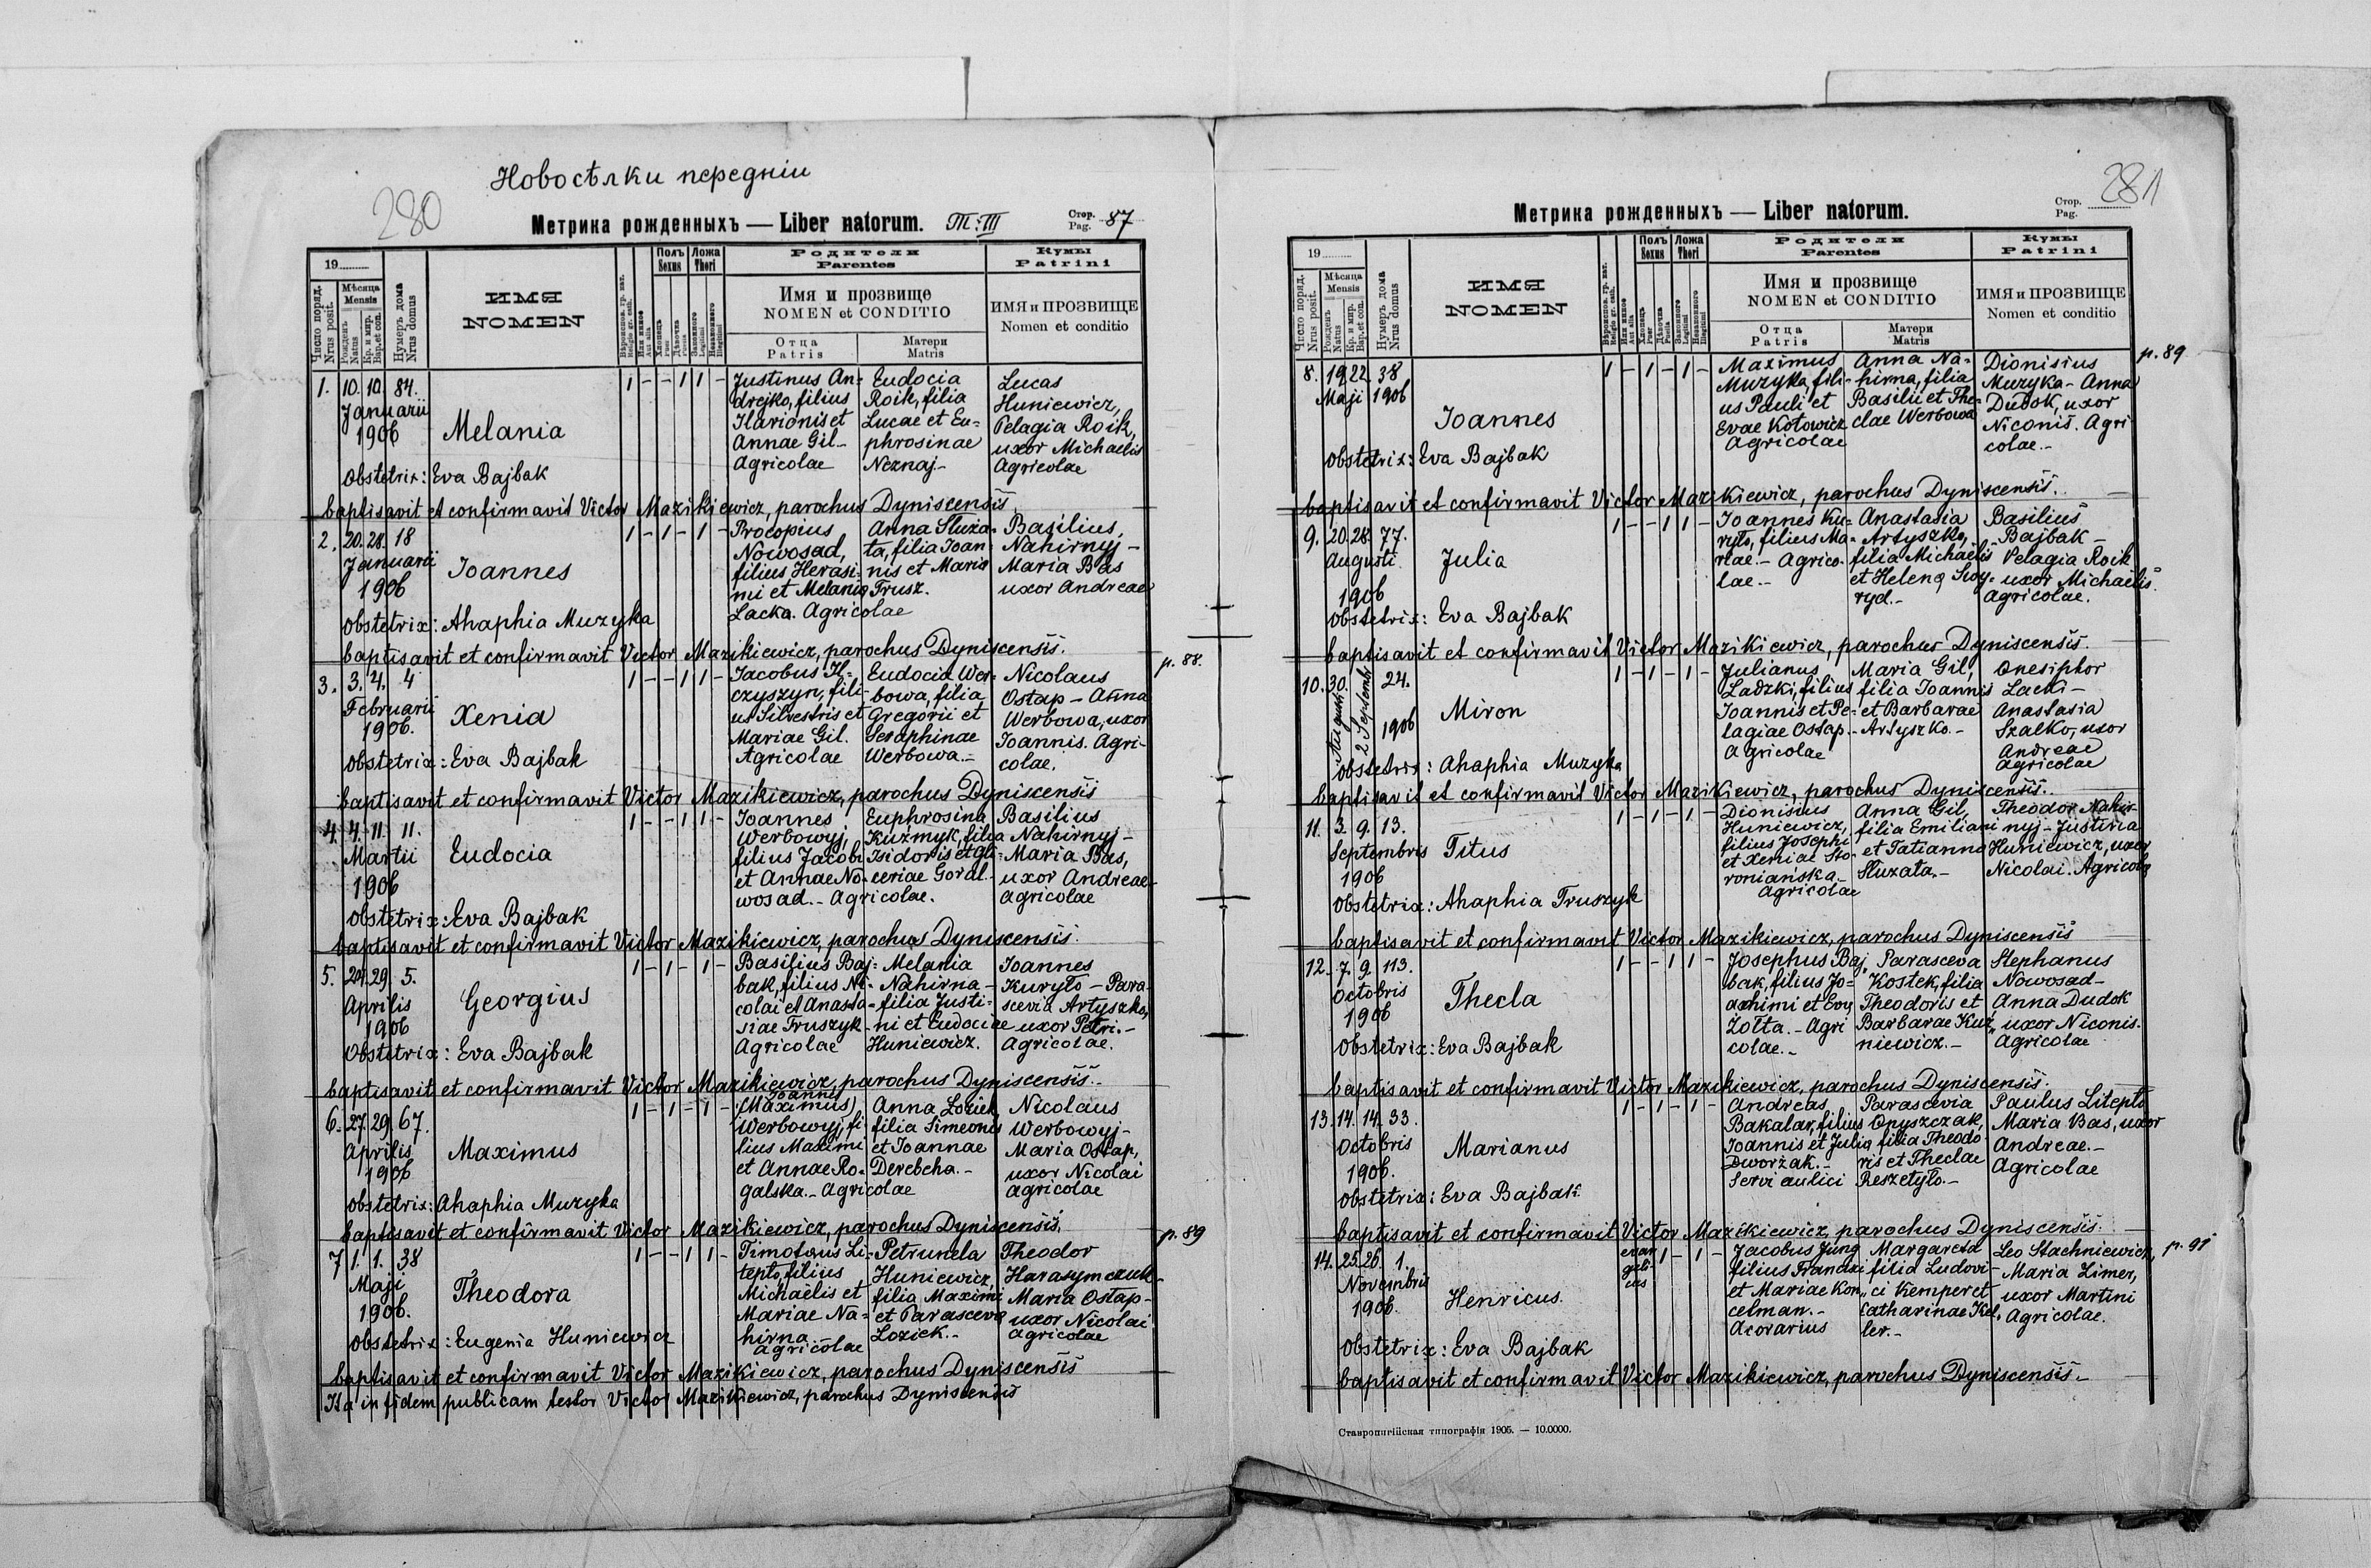 Новосѣлки передніи
280
Метрика рожденныхъ — Liber natorum. T: III
Стор. Pag. 87
19
Число поряд. Nrus posit.
Мѣсяца Mensis
Рожденъ Natus
Кр. и мир. Bap. et con.
Нумеръ дома Nrus domus
ИМЯ
NOMEN
Или иное Aut alia
Полъ Sexus
Хлопець Puer
Дѣвочка Puella
Ложа Thori
Законного Legitimi
Незаконного Illegitimi
Родители
Parentes
Имя и прозвище
NOMEN et CONDITIO
Отца Patris
Матери Matris
Кумы
Patrini
ИМЯ и ПРОЗВИЩЕ
Nomen et conditio
1. 10. 10. 84.
Januarii
1906
Melania
1 - - 1 1 -
Justinus An-
drejko, filius
Ilarionis et
Annae Gil-
Agricolae
Eudocia
Roik, filia
Lucae et Eu-
phrosinae
Neznaj-
Lucas
Huniewicz,
Pelagia Roik,
uxor Michaelis
Agricolae
Obstetrix: Eva Bajbak
baptisavit et confirmavit Victor Mazikiewicz, parochus Dyniscensis
2. 20. 28. 18
Januarii
1906
Joannes
1 - 1 - 1 -
Procopius
Nowosad,
filius Herasi-
mi et Melania
Lacka. Agricolae
Anna Słuza-
ta, filia Joan-
nis et Maria
Trusz.
Basilius,
Nahirnyj -
Maria Bas
uxor Andreae
Obstetrix: Ahaphia Muzyka
baptisavit et confirmavit Victor Mazikiewicz, parochus Dyniscensis.
p. 88.
3. 3. 4. 4
Februarii
1906.
Xenia
1 - - 1 1 -
Jacobus Il-
czyszyn, fili-
us Silvestris et
Mariae Gil.
Agricolae
Eudocia Wer-
bowa, filia
Gregorii et
Seraphinae
Werbowa.-
Nicolaus
Ostap - Anna
Werbowa, uxor
Joannis. Agri-
colae.
Obstetrix: Eva Bajbak
baptisavit et confirmavit Victor Mazikiewicz, parochus Dyniscensis
4. 4. 11. 11.
Martii
1906
Eudocia
1 - - 1 1 -
Joannes
Werbowyj,
filius Jacobi
et Annae No-
wosad.- Agricolae.
Euphrosina
Kuzmyk, filia
Isidoris et Gli-
ceriae Goral.-
Basilius
Nahirnyj -
Maria Bas,
uxor Andreae-
agricolae
Obstetrix: Eva Bajbak
baptisavit et confirmavit Victor Mazikiewicz, parochus Dyniscensis.
5. 24. 29. 5.
Aprilis
1906
Georgius
1 - 1 - 1 -
Basilius Baj-
bak, filius Ni-
colai et Anasta-
siae Truszyk -
Agricolae
Melania
Nahirna -
filia Justi-
ni et Eudociae
Huniewicz.
Joannes
Kuryło - Para-
scevia Artyszko,
uxor Petri.-
Agricolae.
Obstetrix: Eva Bajbak
baptisavit et confirmavit Victor Mazikiewicz, parochus Dyniscensis.
6. 27. 29. 67.
Aprilis
1906
Maximus
1 - 1 - 1 -
Joannes
(Maximus)
Werbowyj, fi-
lius Maximi
et Annae Ro-
galska.- Agricolae
Anna Łoziek
filia Simeonis
et Joannae
Derebcha.-
Nicolaus
Werbowyj-
Maria Ostap,
uxor Nicolai
agricolae
Obstetrix: Ahaphia Muzyka
baptisavit et confirmavit Victor Mazikiewicz, parochus Dyniscensis.
p. 89
7 1. 1. 38
Maji
1906.
Theodora
1 - - 1 1 -
Timoteus Li-
tepło, filius
Michaëlis et
Mariae Na-
hirna.-
agricolae
Petrunela
Huniewicz,
filia Maximi
et Parasceva
Łoziek.-
Theodor
Harasymczuk-
Maria Ostap-
uxor Nicolai.
agricolae
Obstetrix: Eugenia Huniewicz
baptisavit et confirmavit Victor Mazikiewicz, parochus Dyniscensis
Ita in fidem publicam testor Victor Mazikiewicz, parochus Dyniscensis
281
Метрика рожденныхъ — Liber natorum.
Стор. Pag.
19
Число поряд. Nrus posit.
Мѣсяца Mensis
Рожденъ Natus
Кр. и мир. Bap. et con.
Нумеръ дома Nrus domus
ИМЯ
NOMEN
Или иное Aut alia
Полъ Sexus
Хлопець Puer
Дѣвочка Puella
Ложа Thori
Законного Legitimi
Незаконного Illegitimi
Родители
Parentes
Имя и прозвище
NOMEN et CONDITIO
Отца Patris
Матери Matris
Кумы
Patrini
ИМЯ и ПРОЗВИЩЕ
Nomen et conditio
p. 89
8. 19. 22. 38
Maji 1906
Joannes
1 - 1 - 1 -
Maximus
Muzyka, fili-
us Pauli et
Evae Kotowicz
Agricolae
Anna Na-
hirna, filia
Basilii et The-
clae Werbowa
Dionisius
Muzyka - Anna
Dudok, uxor
Niconis. Agri
colae.-
Obstetrix: Eva Bajbak
baptisavit et confirmavit Victor Mazikiewicz, parochus Dyniscensis.
9. 20. 28. 77.
Augusti
1906
Julia
1 - - 1 1 -
Joannes Ku-
ryło, filius Ma-
riae.- Agrico-
lae.-
Anastasia
Artyszko,
filia Michaelis
et Helena Swy-
ryd.-
Basilius
Bajbak -
Pelagia Roik
uxor Michaelis.
agricolae.
Obstetrix: Eva Bajbak
baptisavit et confirmavit Victor Mazikiewicz, parochus Dyniscensis.
10. 30. 24.
Augusti 2 Septembr
1906
Miron
1 - 1 - 1 -
Julianus
Ladzki, filius
Joannis et Pe-
lagiae Ostap.-
Agricolae
Maria Gil,
filia Joannis
et Barbarae
Artyszko.-
Onesiphor
Lacki -
Anastasia
Szalko, uxor
Andreae
Agricolae
Obstetrix: Ahaphia Muzyka
baptisavit et confirmavit Victor Mazikiewicz, parochus Dyniscensis.
11. 3. 9. 13.
Septembris
1906
Titus
1 - 1 - 1 -
Dionisius
Huniewicz,
filius Josephi
et Xeniae Sto-
roniańska.-
Agricolae
Anna Gil,
filia Emiliani
et Tatianna
Słuzata.-
Theodor Nahir-
nyj - Justina
Huniewicz, uxor
Nicolai. Agricolae
Obstetrix: Ahaphia Truszyk
baptisavit et confirmavit Victor Mazikiewicz, parochus Dyniscensis
12. 7. 9. 113.
Octobris
1906
Thecla
1 - - 1 1 -
Josephus Baj
bak, filius Jo-
achimi et Evy
Zołta.- Agri
colae.-
Parasceva
Kostek, filia
Theodoris et
Barbarae Kuz„
niewicz.-
Stephanus
Nowosad-
Anna Dudok
uxor Niconis.
Agricolae
Obstetrix: Eva Bajbak
baptisavit et confirmavit Victor Mazikiewicz, parochus Dyniscensis.
13. 14. 14. 33.
Octobris
1906.
Marianus
1 - 1 - 1 -
Andreas
Bakalar, filius
Joannis et Julia
Dworzak.-
Servi aulici
Parascevia
Opyszczak,
filia Theodo-
ris et Theclae
Reszetyło.-
Paulus Litepło
Maria Bas, uxor
Andreae.-
Agricolae
Obstetrix: Eva Bajbak
baptisavit et confirmavit Victor Mazikiewicz, parochus Dyniscensis.
p. 91
14. 25. 26. 1.
Novembris
1906.
Henricus.
evan
geli
cus
1 - 1 -
Jacobus Jung
filius Francisci
et Mariae Kon„
celman.-
Margareta
filia Ludovi-
ci Kemper et
Catharinae Kel„
ler.-
Leo Stachniewicz,
Maria Limer,
uxor Martini
Agricolae.
Obstetrix: Eva Bajbak
baptisavit et confirmavit Victor Mazikiewicz, parochus Dyniscensis.-
Ставропигійская типографія 1905. — 10.0000.